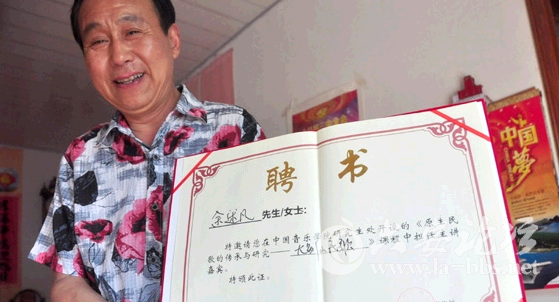 聘书
余述凡 先生/女士:
特邀请您在中国音乐学院研究生处开设的《原生民
歌的传承与研究——大别山民歌》课程中担任主讲
嘉宾。
特颁此证。
中国
梦
www.la-bbs.net